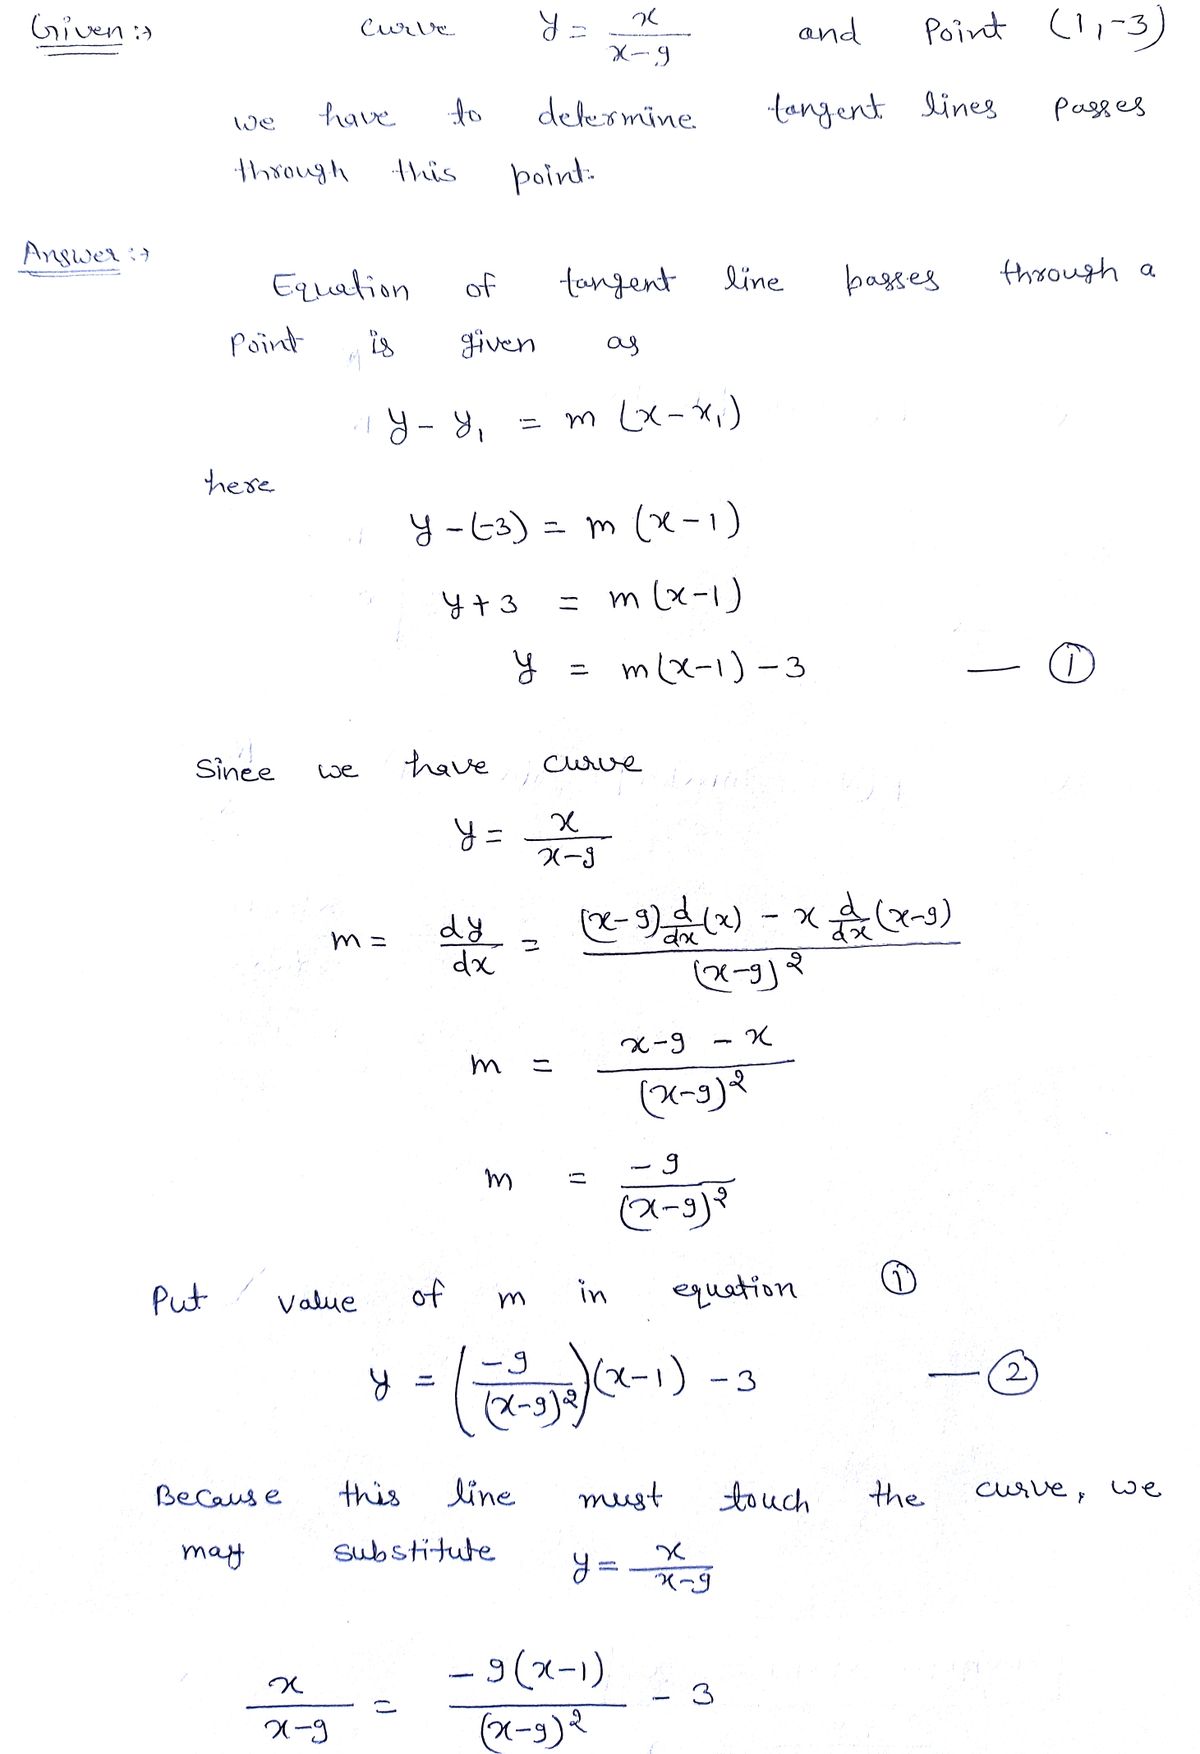 Given :→ curve y = x/(x-9) and Point (1,-3)
we have to determine tangent lines passes
through this point.
Answer :→
Equation of tangent line passes through a
Point is given as
y - y₁ = m (x - x₁)
here
y - (-3) = m (x - 1)
y + 3 = m (x-1)
y = m(x-1) - 3 — ①
Since we have curve
y = x/(x-9)
m = dy/dx = ((x-9) d/dx (x) - x d/dx (x-9))/(x-9)²
m = (x-9 - x)/(x-9)²
m = -9/(x-9)²
Put value of m in equation ①
y = (-9/(x-9)²)(x-1) - 3 — ②
Because this line must touch the curve, we
may substitute y = x/(x-9)
x/(x-9) = -9(x-1)/(x-9)² - 3